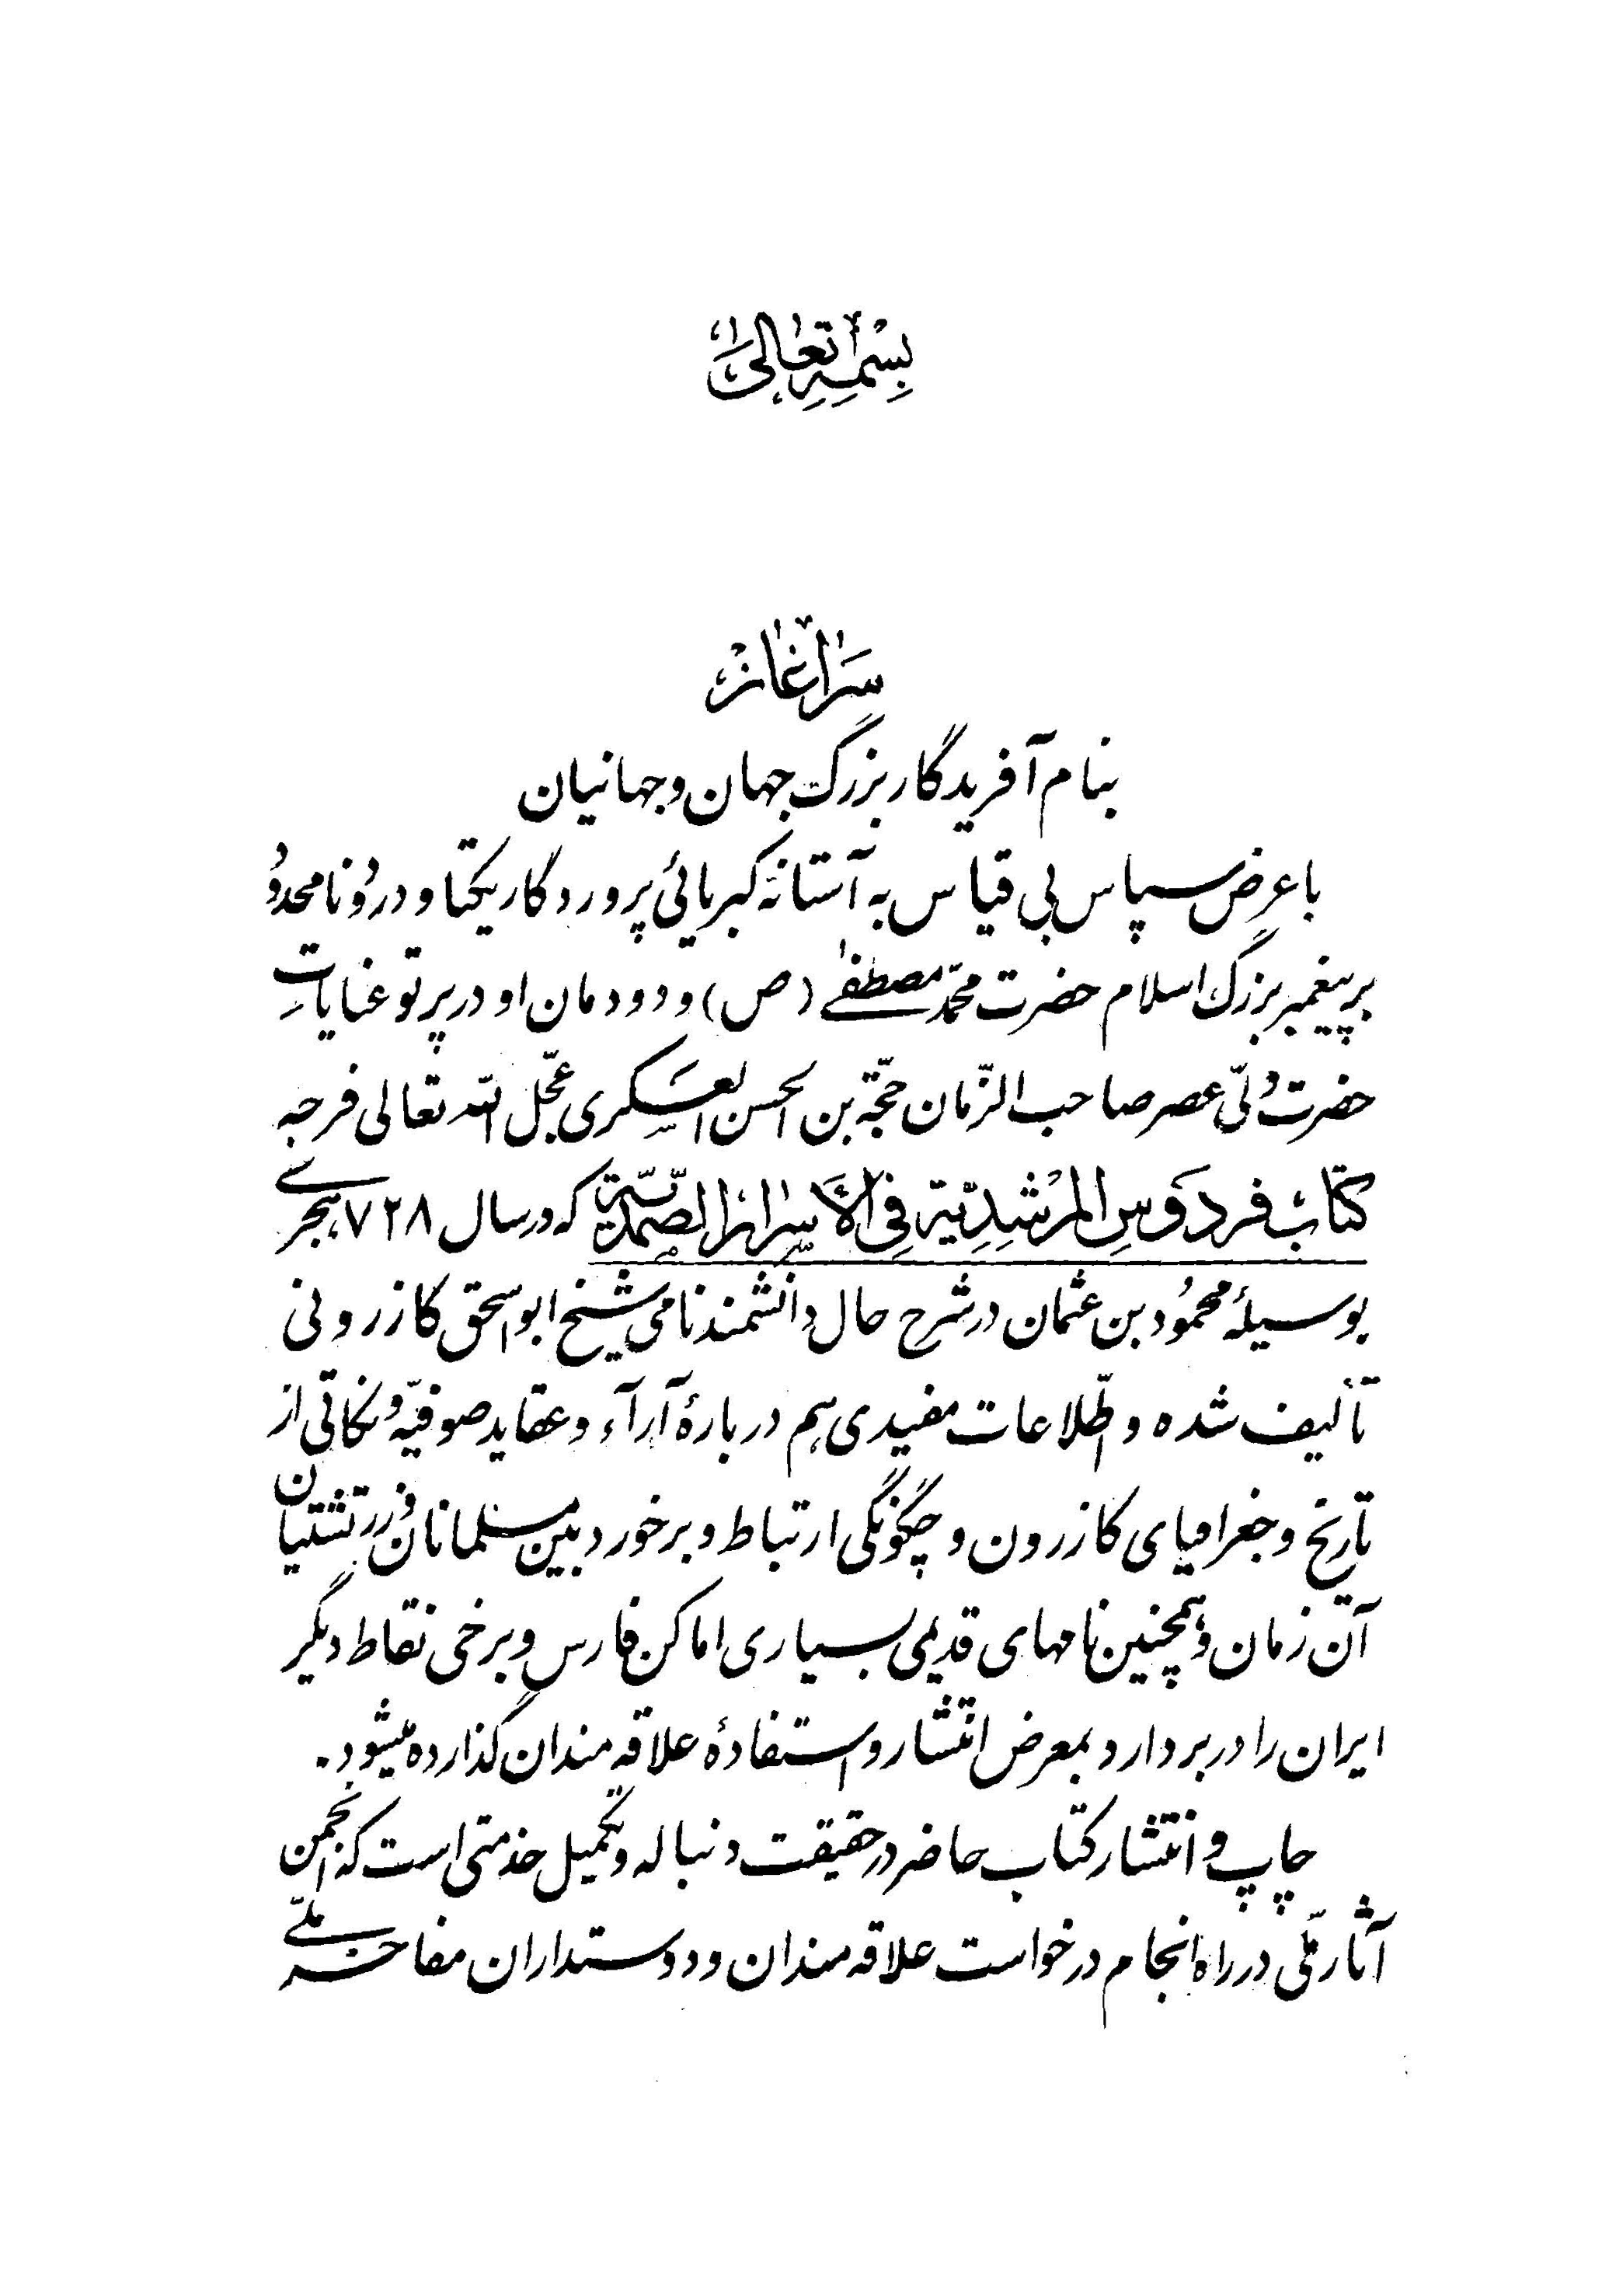 بِسْمِهِ تَعَالَىٰ
سَرآغاز
بنام آفریدگار بزرگ جهان و جهانیان
با عرض سپاس بی قیاس به آستانهٔ کبریائی پروردگار یکتا و درود نامحدود
بر پیغمبر بزرگ اسلام حضرت محمّد مصطفیٰ (ص) و دودمان او در پرتو عنایاتِ
حضرت ولیّ عصر صاحب الزّمان حجّة بن الحسن العسکری عجّل اللّه تعالی فرجه
کتاب فردَوسِ المُرشِدِیّة فِی الأَسرارِ الصَّمَدیّة که در سال ۷۲۸ هجری
بوسیلهٔ محمُود بن عثمان در شرح حال دانشمند نامی شیخ ابو اسحق کازرونی
تألیف شده و اطّلاعات مفیدی هم در بارهٔ آراء و عقاید صوفیّه و نکاتی از
تاریخ و جغرافیای کازرون و چگونگی ارتباط و برخورد بین مسلمانان و زرتشتیان
آن زمان و همچنین نامهای قدیمی بسیاری اماکن فارس و برخی نقاط دیگر
ایران را در بر دارد بمعرض انتشار و استفادهٔ علاقه مندان گذارده میشود.
چاپ و انتشار کتاب حاضر در حقیقت دنباله و تکمیل خدمتی است که انجمن
آثار ملّی در راه انجام درخواست علاقه مندان و دوستداران مفاخر ملّی